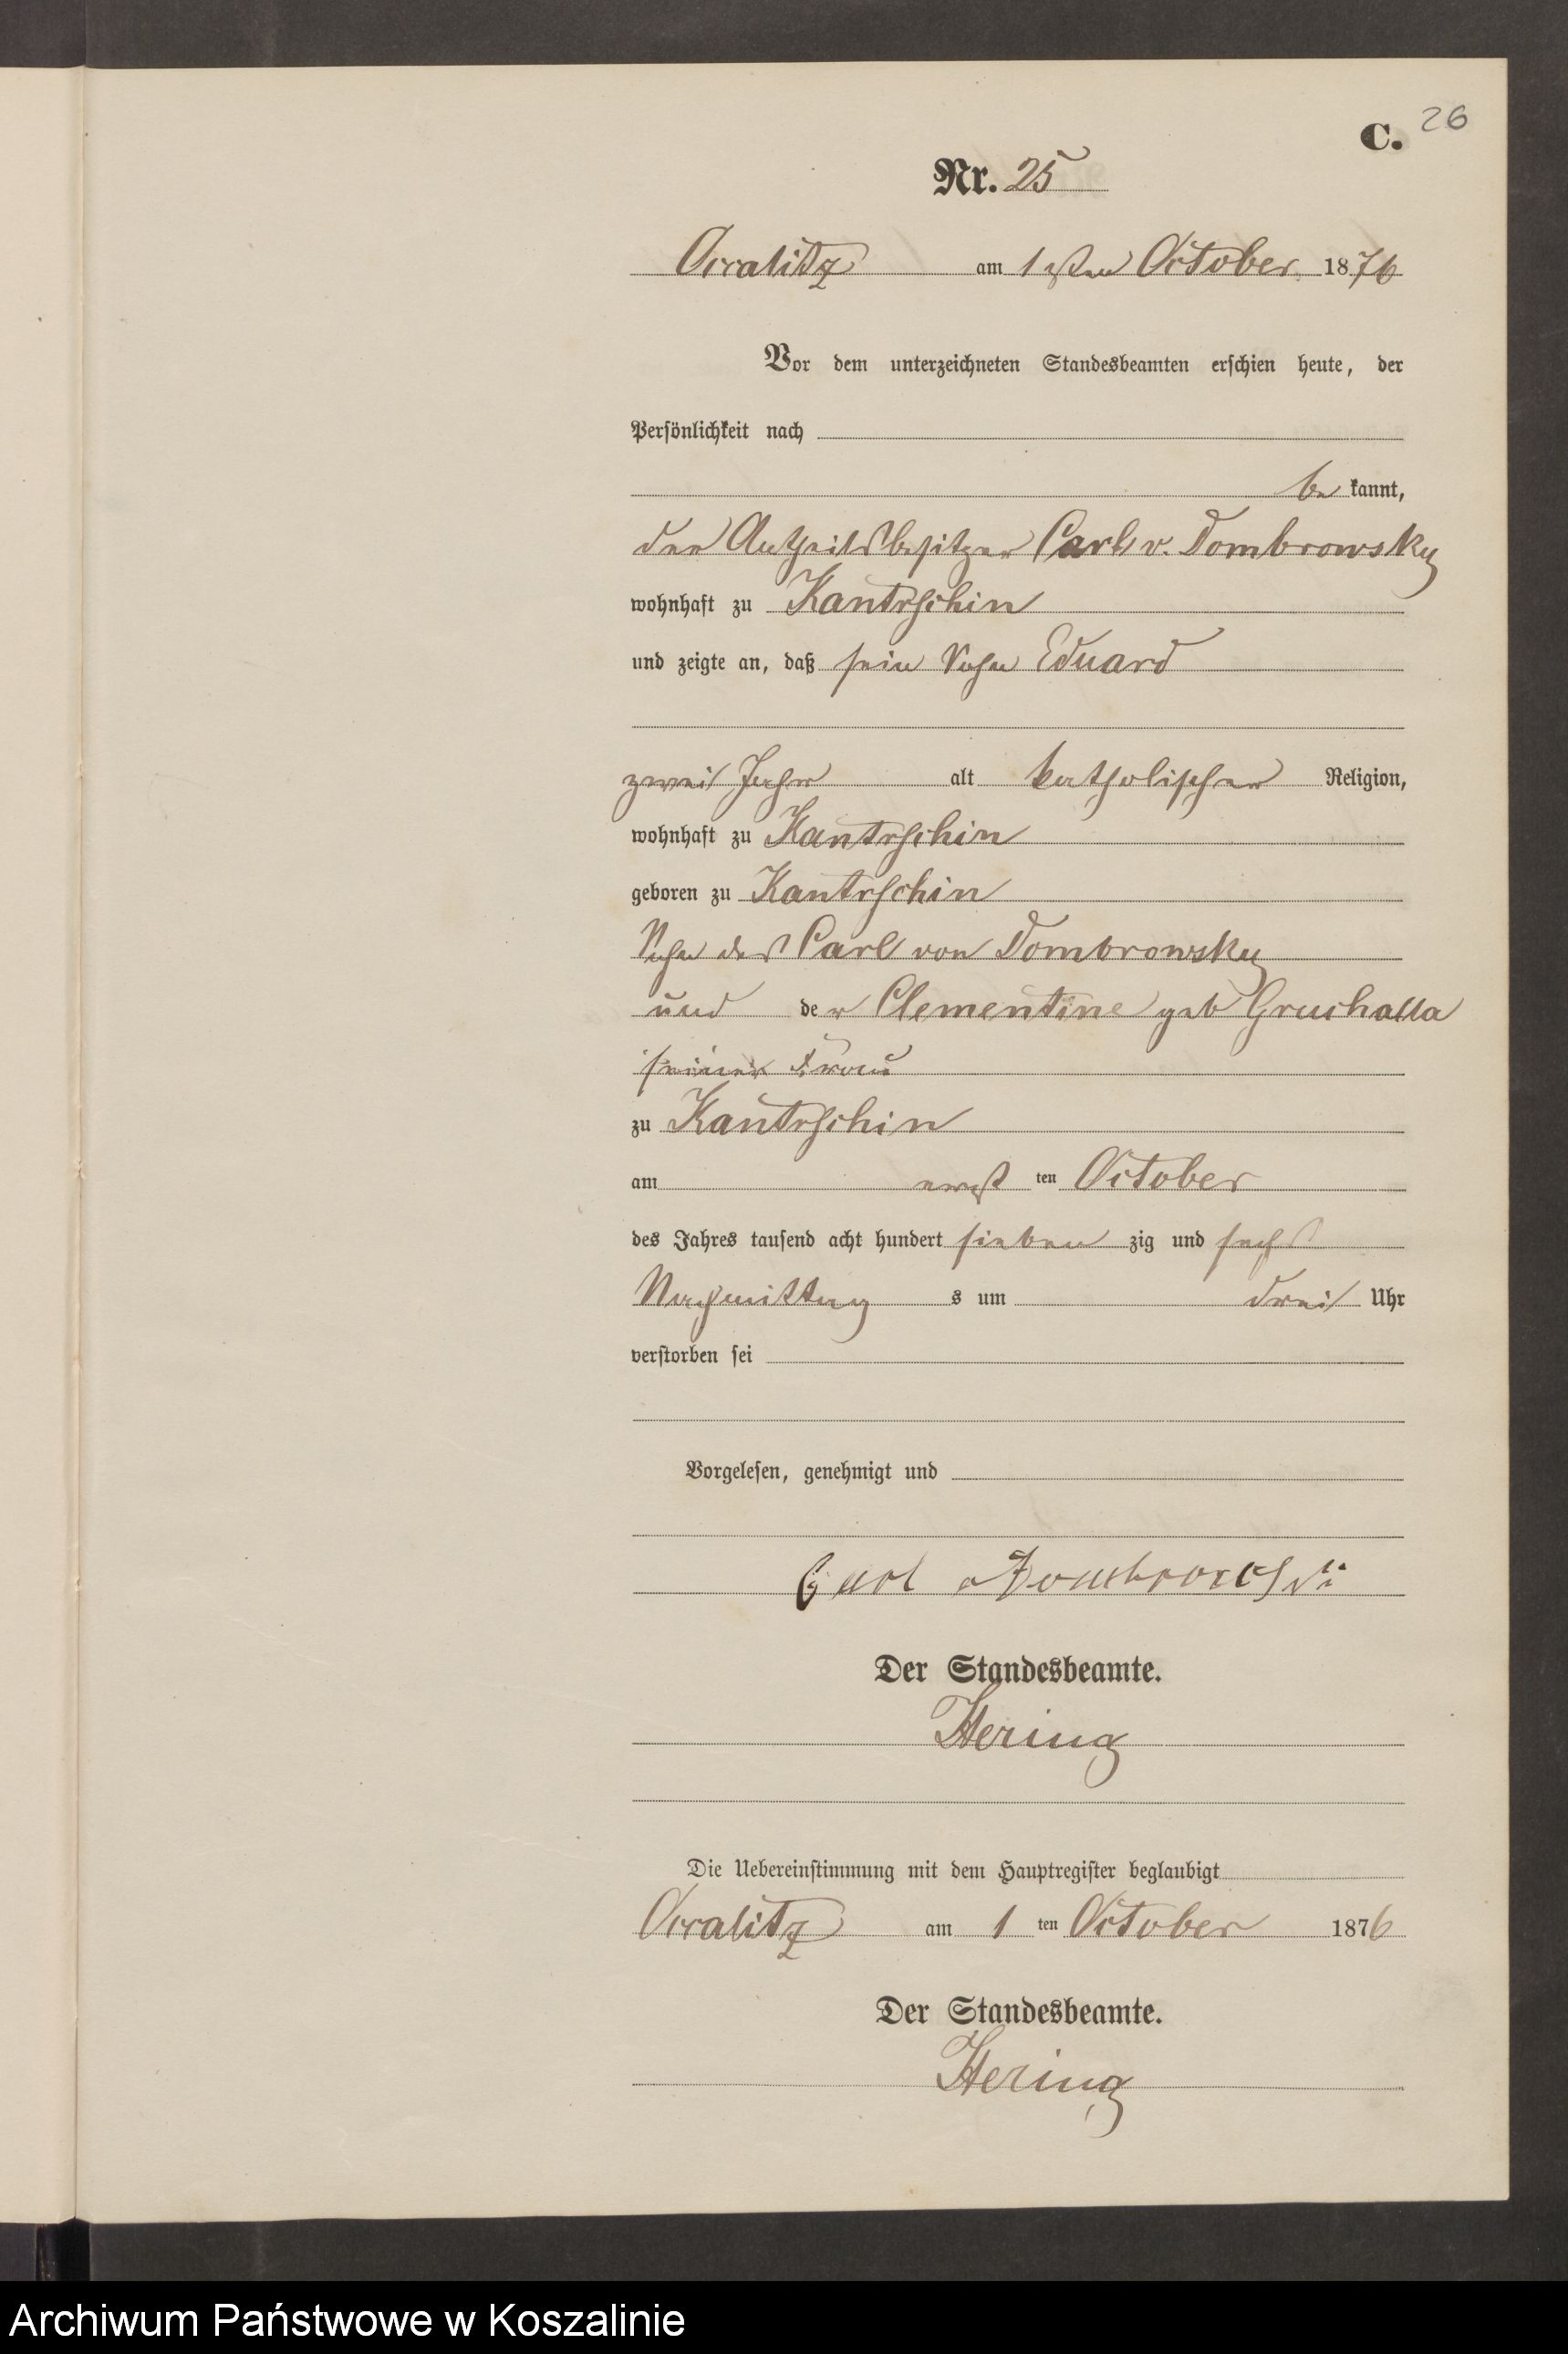 C. 26
Nr. 25
Occalitz am 1sten October 1876
Vor dem unterzeichneten Standesbeamten erschien heute, der
Persönlichkeit nach
be kannt,
der Antheilsbesitzer Carl v. Dombrowsky
wohnhaft zu Kantrschin
und zeigte an, daß sein Sohn Eduard
zwei Jahr alt katholischer Religion,
wohnhaft zu Kantrschin
geboren zu Kantrschin
Sohn des Carl von Dombrowsky
und der Clementine geb Gruchalla
seiner Frau
zu Kantrschin
am erst ten October
des Jahres tausend acht hundert sieben zig und sechs
Nachmittag s um drei Uhr
verstorben sei
Vorgelesen, genehmigt und
Carl
Der Standesbeamte.
Hering
Die Uebereinstimmung mit dem Hauptregister beglaubigt
Occalitz am 1 ten October 1876
Der Standesbeamte.
Hering
Archiwum Państwowe w Koszalinie